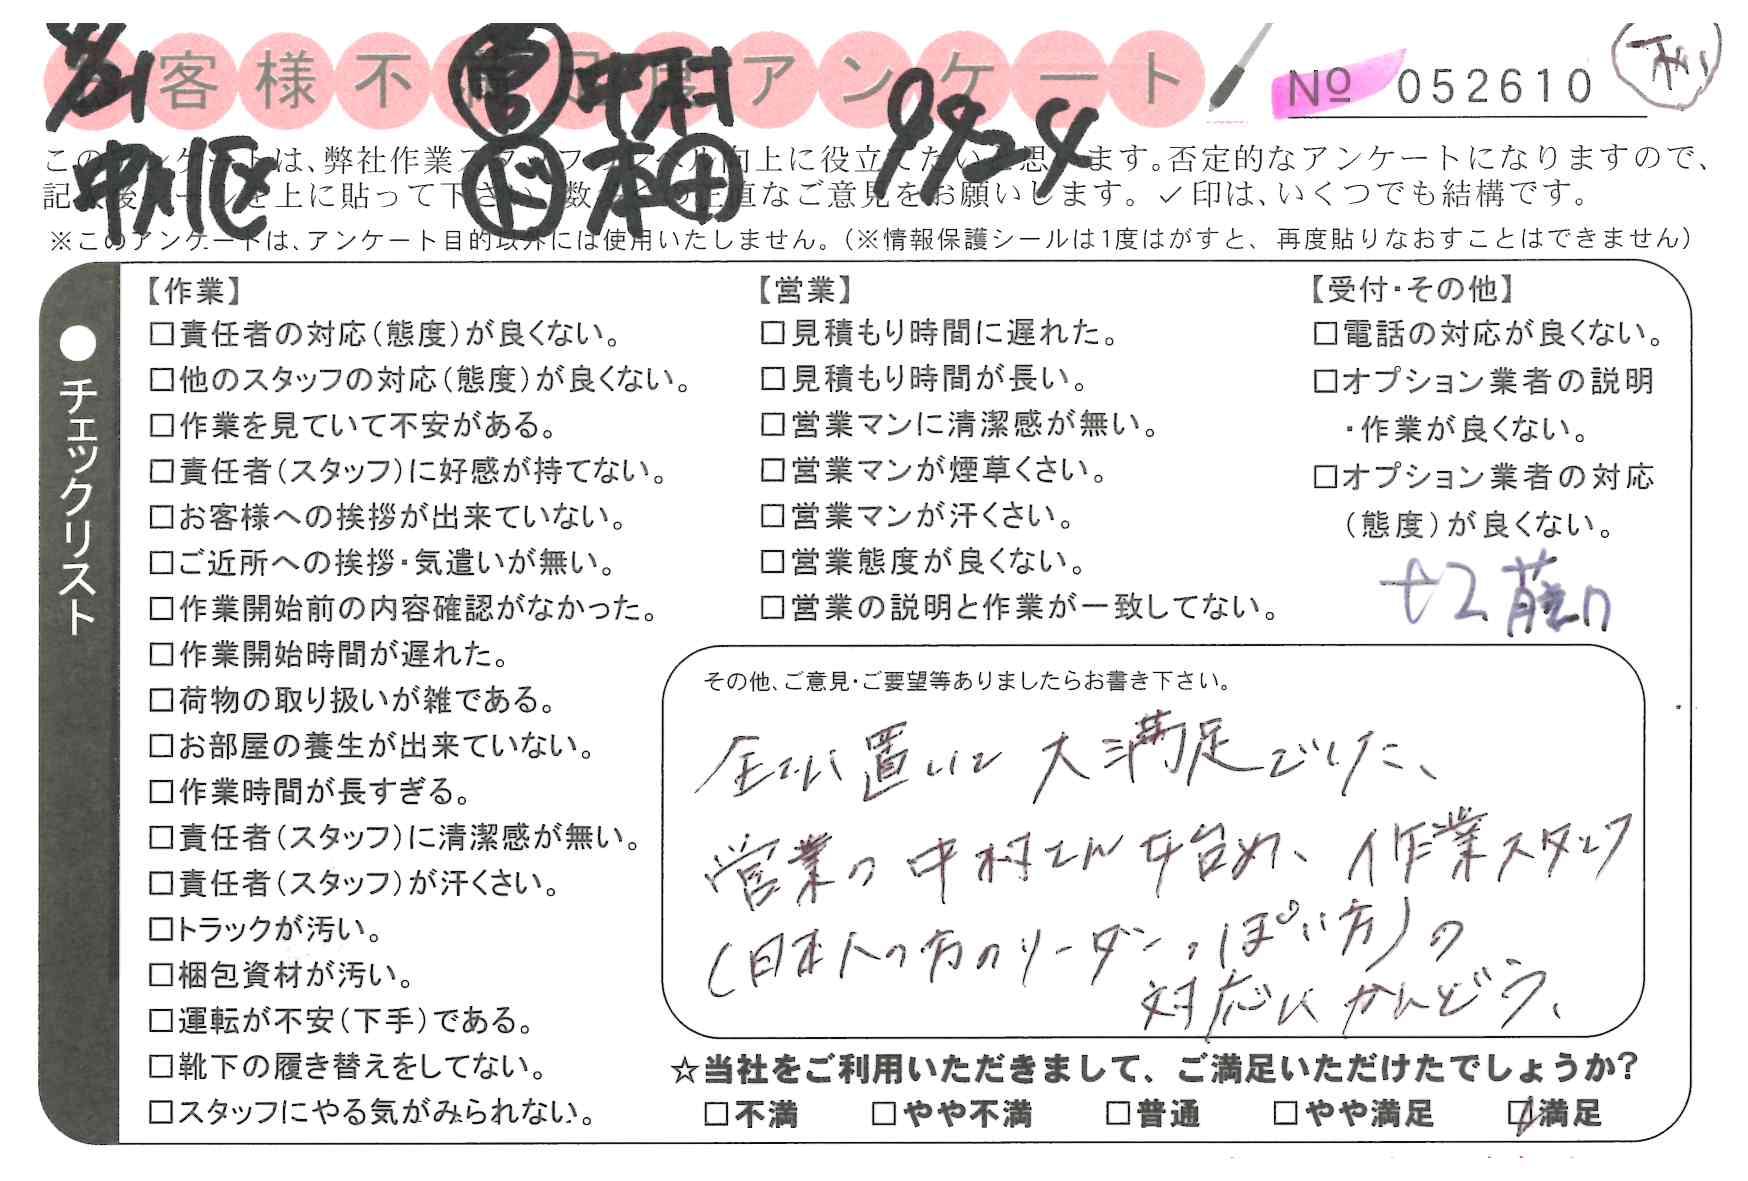 客様不 アンケート
8/31 営 中村 9924
中川区 ド 本田
No 052610
このアンケートは、弊社作業スタッフのレベル向上に役立てたいと思います。否定的なアンケートになりますので、
記入後シールを上に貼って下さい。数 の正直なご意見をお願いします。✓印は、いくつでも結構です。
※このアンケートは、アンケート目的以外には使用いたしません。(※情報保護シールは1度はがすと、再度貼りなおすことはできません)
●チェックリスト
【作業】
□責任者の対応(態度)が良くない。
□他のスタッフの対応(態度)が良くない。
□作業を見ていて不安がある。
□責任者(スタッフ)に好感が持てない。
□お客様への挨拶が出来ていない。
□ご近所への挨拶・気遣いが無い。
□作業開始前の内容確認がなかった。
□作業開始時間が遅れた。
□荷物の取り扱いが雑である。
□お部屋の養生が出来ていない。
□作業時間が長すぎる。
□責任者(スタッフ)に清潔感が無い。
□責任者(スタッフ)が汗くさい。
□トラックが汚い。
□梱包資材が汚い。
□運転が不安(下手)である。
□靴下の履き替えをしてない。
□スタッフにやる気がみられない。
【営業】
□見積もり時間に遅れた。
□見積もり時間が長い。
□営業マンに清潔感が無い。
□営業マンが煙草くさい。
□営業マンが汗くさい。
□営業態度が良くない。
□営業の説明と作業が一致してない。
【受付・その他】
□電話の対応が良くない。
□オプション業者の説明
・作業が良くない。
□オプション業者の対応
(態度)が良くない。
その他、ご意見・ご要望等ありましたらお書き下さい。
全てに置いて大満足でした、
営業の中村さんを含め、作業スタッフ
(日本人の方のリーダーっぽい方)の
対応にかんどう、
☆当社をご利用いただきまして、ご満足いただけたでしょうか?
□不満 □やや不満 □普通 □やや満足 ☑満足